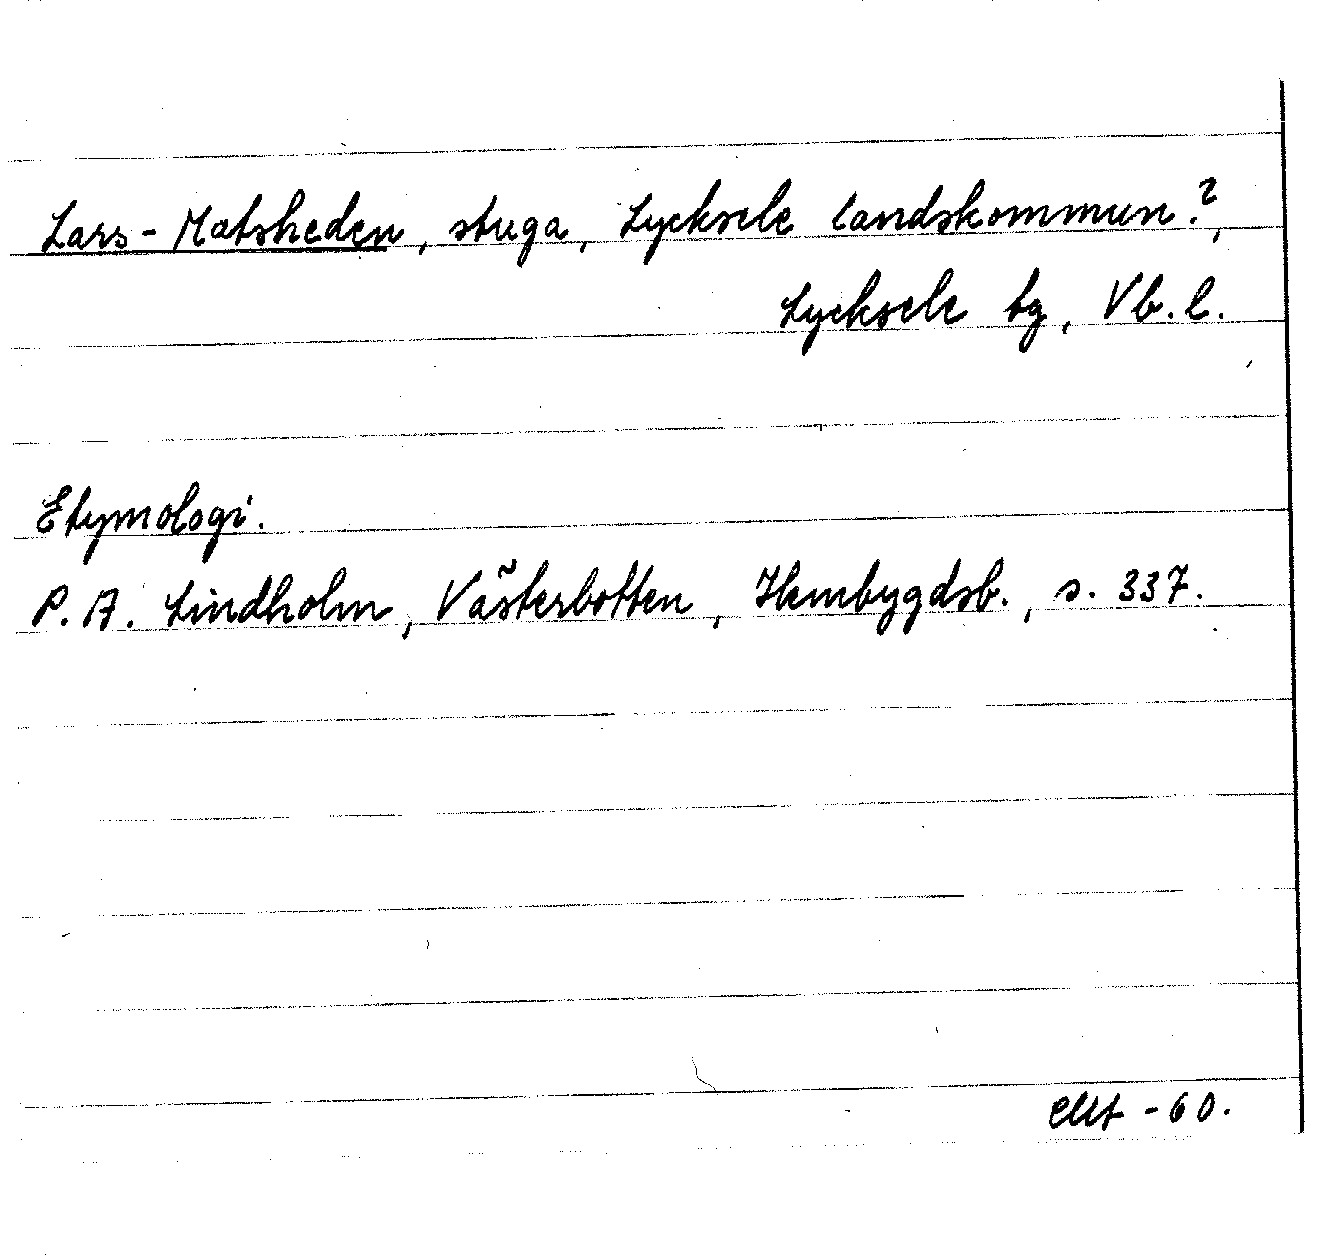 Lars-Matsheden, stuga, Lycksele landskommun?,
Lycksele tg, Vb.l.
Etymologi.
P. A. Lindholm, Västerbotten, Hembygdsb., s. 337.
-60.